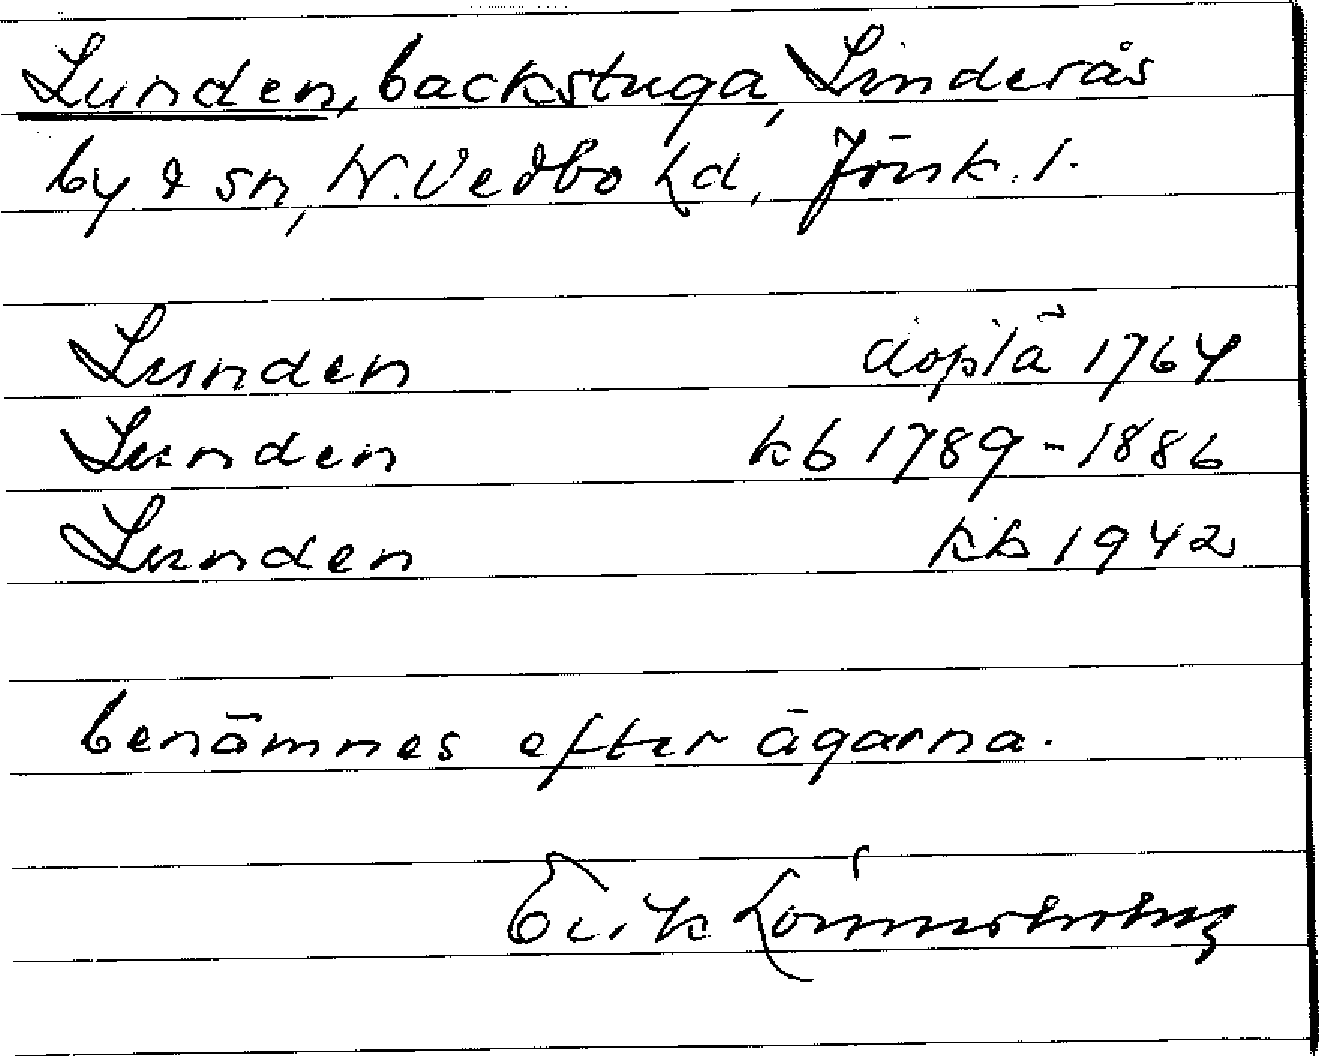 Lunden, backstuga, Linderås
by & sn, N. Vedbo hd, Jönk. l.
Lunden doplä 1764
Lunden kb 1789-1886
Lunden kb 1942
benämnes efter ägarna.
Erik